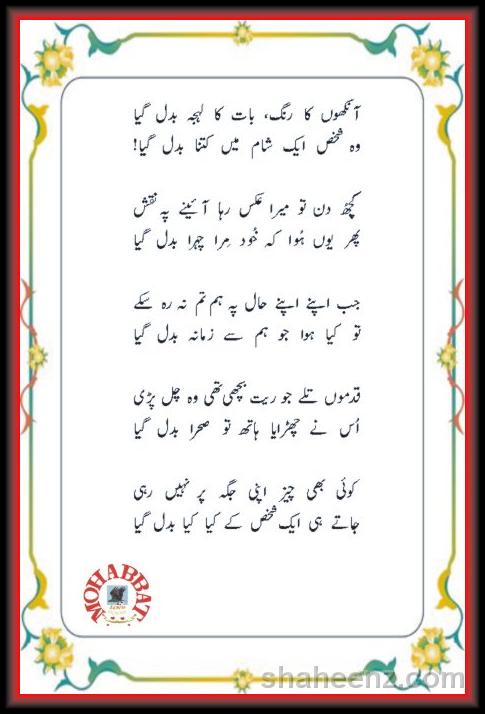 آنکھوں کا رنگ، بات کا لہجہ بدل گیا
وہ شخص ایک شام میں کتنا بدل گیا!
کچھ دن تو میرا عکس رہا آئینے پہ نقش
پھر یوں ہُوا کہ خُود مِرا چہرا بدل گیا
جب اپنے اپنے حال پہ ہم تم نہ رہ سکے
تو کیا ہوا جو ہم سے زمانہ بدل گیا
قدموں تلے جو ریت بچھی تھی وہ چل پڑی
اُس نے چھڑایا ہاتھ تو صحرا بدل گیا
کوئی بھی چیز اپنی جگہ پر نہیں رہی
جاتے ہی ایک شخص کے کیا کیا بدل گیا
MOHABBAT
shaheenz.com